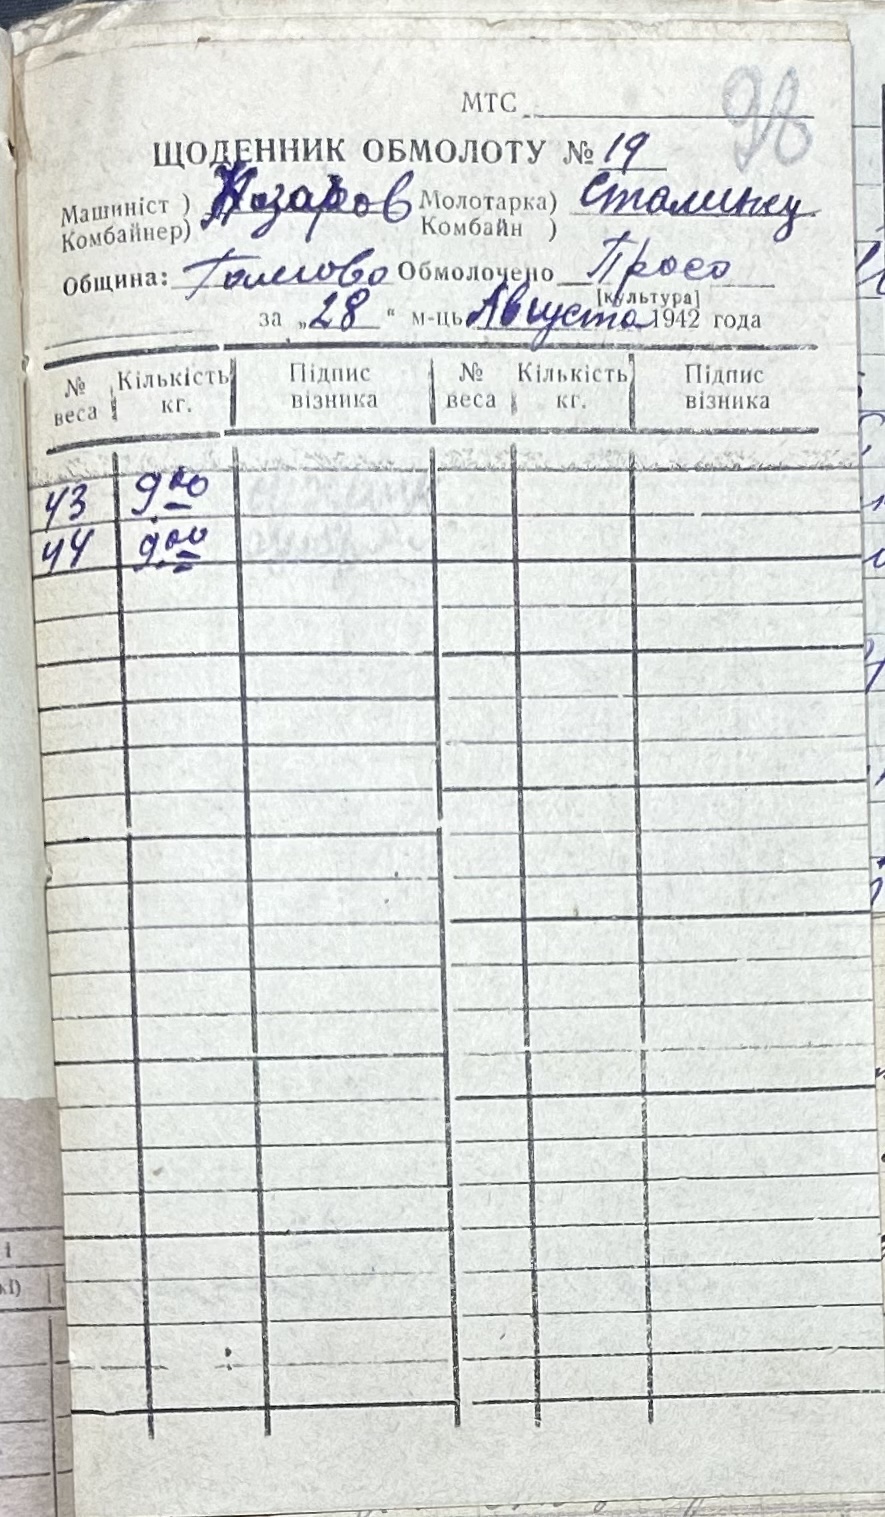 98
МТС
ЩОДЕННИК ОБМОЛОТУ № 19
Машиніст ) Назаров Молотарка)
Комбайнер) Комбайн )
Община: Обмолочено Просо
[культура]
за „28“ м-ць Августа 1942 года
№ веса Кількість кг. Підпис візника № веса Кількість кг. Підпис візника
43 9 00
44 9 00